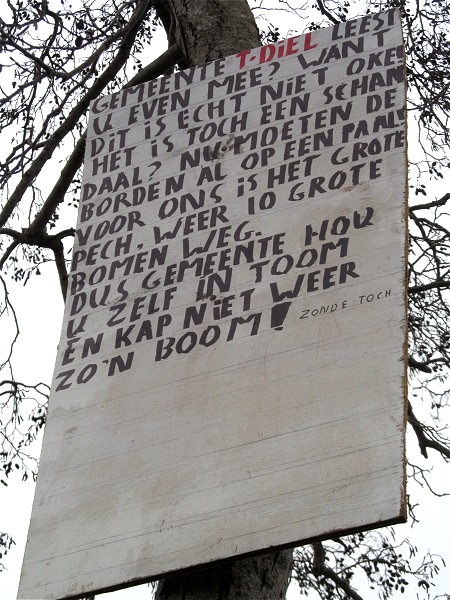 GEMEENTE T-DIEL LEEST
U EVEN MEE? WANT
DIT IS ECHT NIET OKE!
HET IS TOCH EEN SCHAN
DAAL? NU MOETEN DE
BORDEN AL OP EEN PAAL!
VOOR ONS IS HET GROTE
PECH. WEER 10 GROTE
BOMEN WEG.
DUS GEMEENTE HOU
U ZELF IN TOOM
EN KAP NIET WEER
ZO'N BOOM! ZONDE TOCH